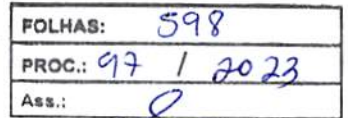 FOLHAS: 598
PROC.: 97 / 2023
Ass.: